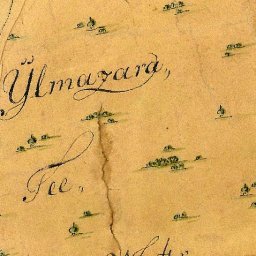 Ÿlmazara,
Fee,